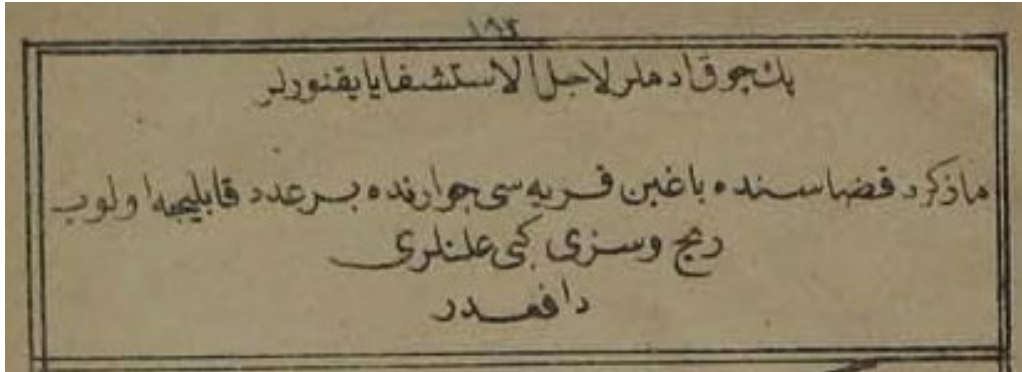 ١٩٢
پك چوق ادملر لاجل الاستشفا يايقنورلر
مازكرد قضاسنده باغين قريه سی جوارنده بر عدد قابليجه اولوب
ريح و سزی كبی علتلری
دافعدر